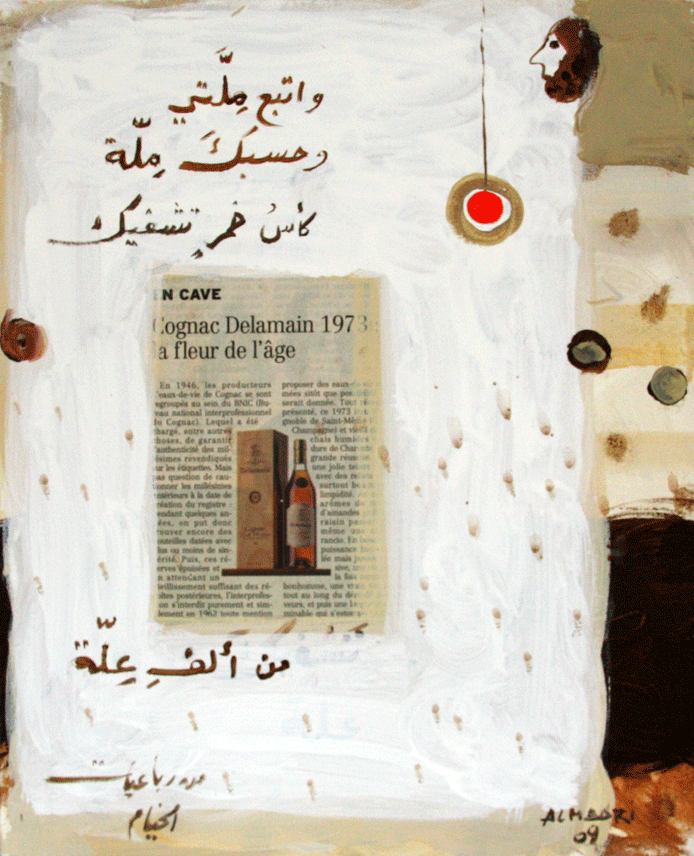 واتبع مِلّتي
وحسبكَ مِلّة
كأسُ خمرٍ تشفيك
EN CAVE
Cognac Delamain 1973
la fleur de l'âge
En 1946, les producteurs
d'eaux-de-vie de Cognac se sont
regroupés au sein du BNIC (Bu-
reau national interprofessionnel
du Cognac). Lequel a été
chargé, entre autres
choses, de garantir
l'authenticité des mil-
lésimes revendiqués
sur les étiquettes. Mais
pas question de cau-
tionner les millésimes
antérieurs à la date de
création du registre :
pendant quelques an-
nées, on put donc
trouver encore des
bouteilles datées avec
plus ou moins de sin-
cérité. Puis, ces ré-
serves épuisées et
en attendant un
vieillissement suffisant des ré-
coltes postérieures, l'interprofes-
sion s'interdit purement et sim-
plement en 1962 toute mention
proposer des eaux-de-vie
mées sitôt que
serait donnée. Tout
présenté, ce 1973
gnoble de Saint-Même
Champagne) et vieilli
chais humides
dure de Charente
grande
une jolie
avec des
surtout
limpidité.
arômes
d'amandes
raisin
même une
rancio. En
puissance
lée mais
sive,
la fin
bonhomme, une
tout au long du
veurs, et puis une
minable qui s'estompe
من ألفِ عِلّة
من رباعيات
الخيام
ALMASRI
09